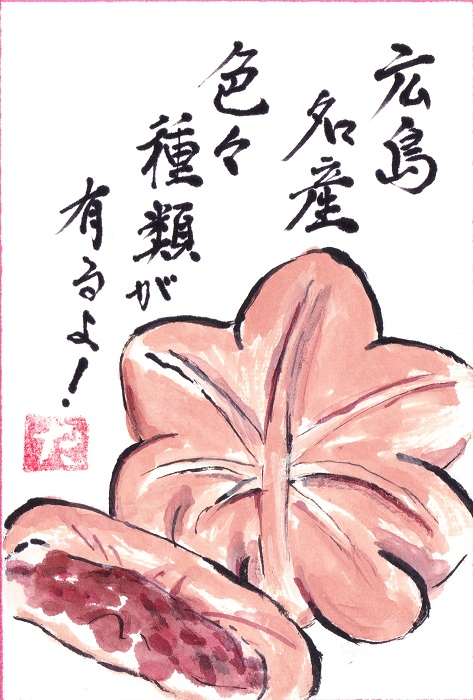 広島
名産
色々
種類が
有るよ!
た